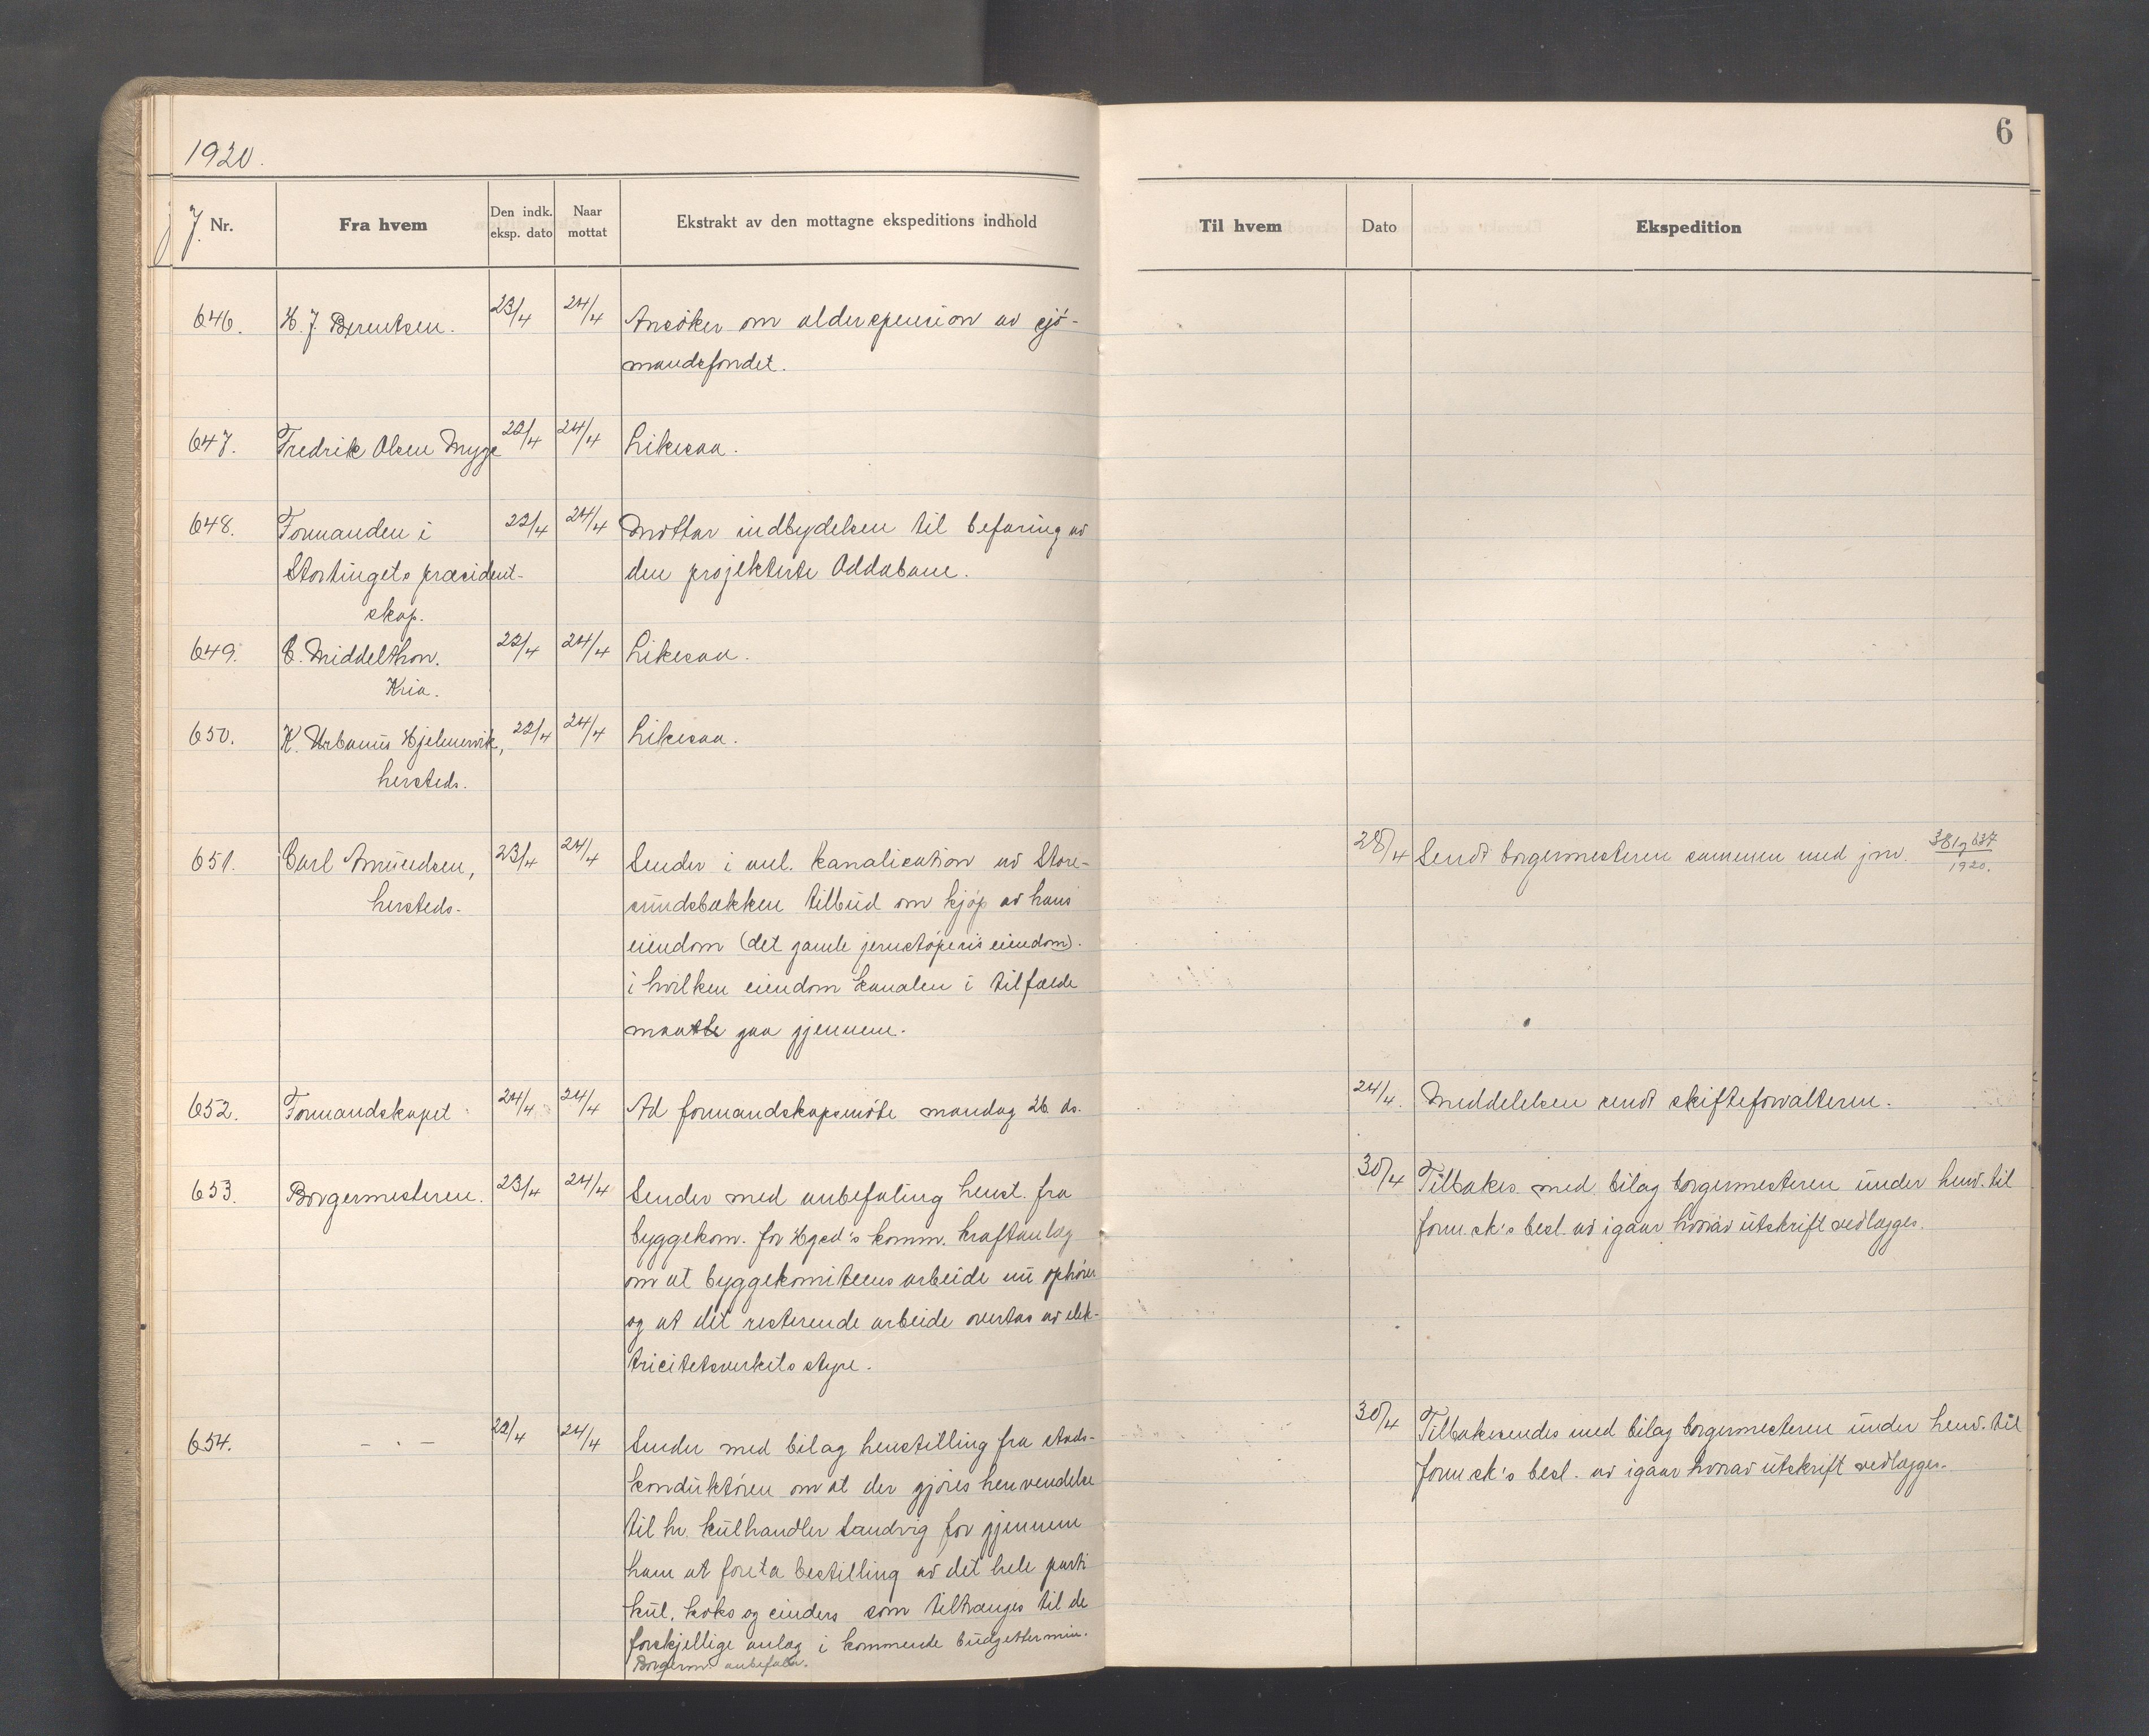 1920.
6
J. Nr.
Fra hvem
Den indk. eksp. dato
Naar mottat
Ekstrakt av den mottagne ekspeditions indhold
Til hvem
Dato
Ekspedition
646. H. J. Berentsen. 23/4 24/4 Ansøker om alderspension av sjø-
mandsfondet.
647. Fredrik Olsen Myge 22/4 24/4 Likesaa.
648. Formanden i 22/4 24/4 Mottar indbydelsen til befaring av
Stortingets præsident- den projekterte Oddabane.
skap.
649. C. Middelthon. 22/4 24/4 Likesaa.
Kria.
650. K. Urbanus Hjelmervik, 22/4 24/4 Likesaa.
hersteds.
651. Carl Amundsen, 23/4 24/4 Sender i anl. kanalisation av Store- 28/4 Sendt borgermesteren sammen med jnr. 381 og 637/1920.
hersteds. sundsbækken tilbud om kjøp av hans
eiendom (det gamle jernstøperis eiendom).
i hvilken eiendom kanalen i tilfælde
maatte gaa gjennem.
652. Formandskapet 24/4 24/4 Ad formandskapsmøte mandag 26 ds. 24/4. Meddelelsen sendt skifteforvalteren.
653. Borgermesteren. 23/4 24/4 Sender med anbefaling henst. fra 30/4 Tilbakes. med bilag borgermesteren under henv. til
byggekom. for Hgsd's komm. kraftanlæg form.sk's besl. av igaar hvorav utskrift vedlægges.
om at byggekomiteens arbeide nu ophører
og at det resterende arbeide overtas av elek-
tricitetsverkets styre.
654. - . - 22/4 24/4 Sender med bilag henstilling fra stads- 30/4 Tilbakesendes med bilag borgermesteren under henv. til
konduktøren om at der gjøres henvendelse form.sk's besl. av igaar hvorav utskrift vedlægges.
til hr. kulhandler Sandvig for gjennem
ham at foreta bestilling av det hele parti
kul, koks og cinders som tiltrænges til de
forskjellige anlæg i kommende budgettermin.
Borgerm. anbefaler.